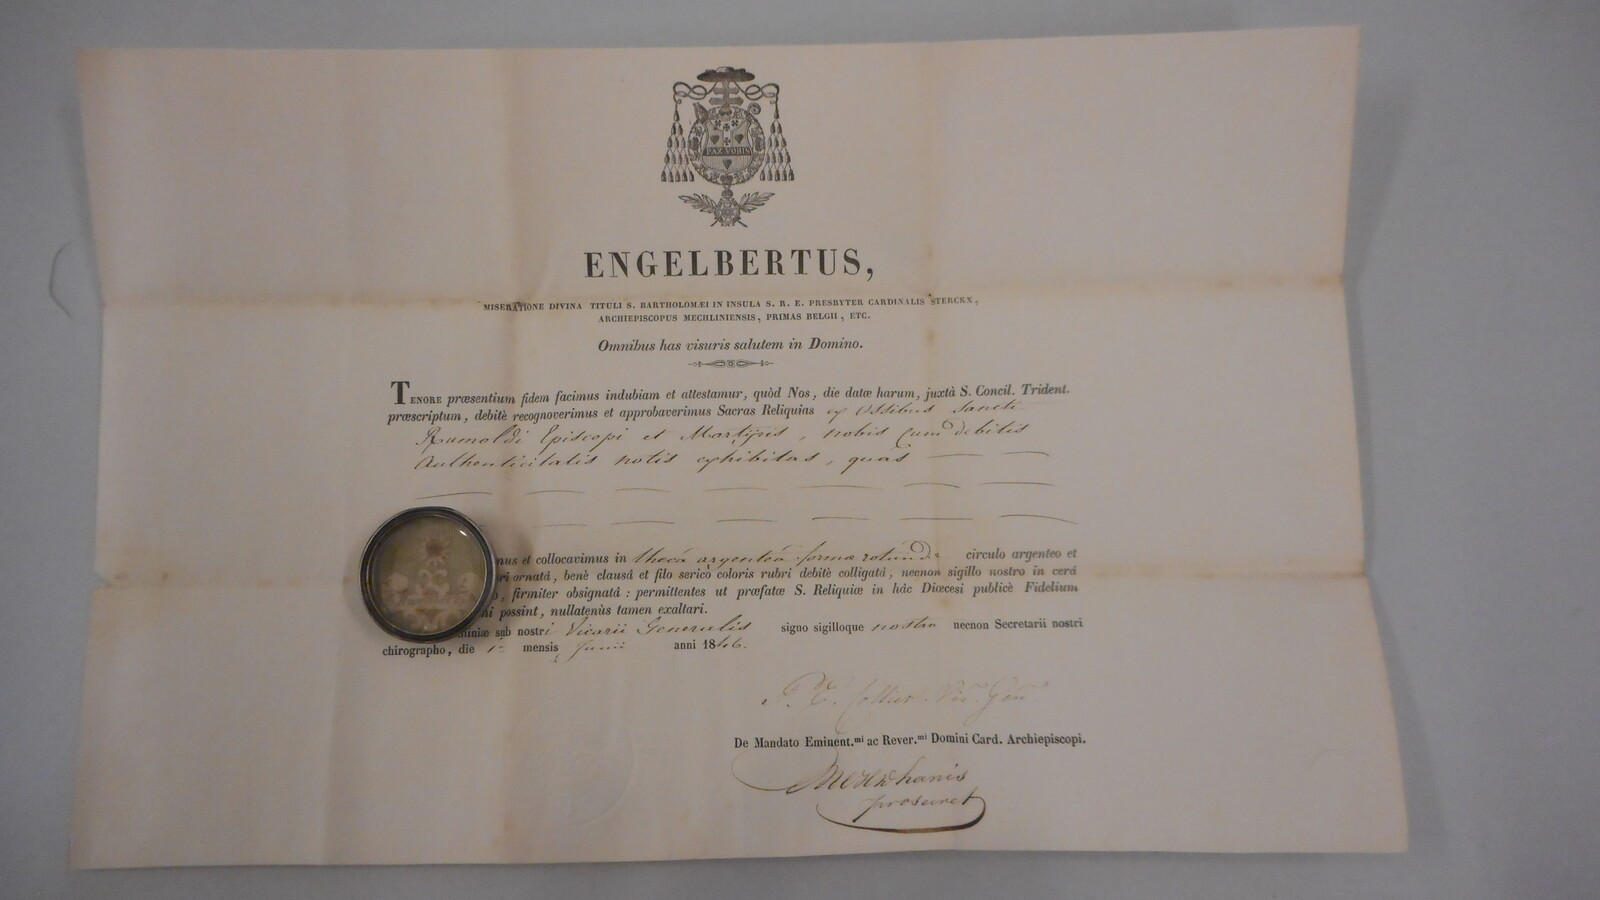 PAX VOBIS
ENGELBERTUS,
MISERATIONE DIVINA TITULI S. BARTHOLOMÆI IN INSULA S. R. E. PRESBYTER CARDINALIS STERCKX,
ARCHIEPISCOPUS MECHLINIENSIS, PRIMAS BELGII, ETC.
Omnibus has visuris salutem in Domino.
TENORE præsentium fidem facimus indubiam et attestamur, quòd Nos, die datæ harum, juxtà S. Concil. Trident.
præscriptum, debitè recognoverimus et approbaverimus Sacras Reliquias ex Ossibus Sancti
Rumoldi Episcopi et Martyris, nobis cum debitis
Authenticitatis notis exhibitas, quas
mus et collocavimus in thecâ argenteâ formæ rotundæ circulo argenteo et
ri ornatá, benè clausá et filo serico coloris rubri debitè colligatá, necnon sigillo nostro in cerá
o, firmiter obsignatá : permittentes ut præfatæ S. Reliquiæ in hác Diœcesi publicè Fidelium
ni possint, nullatenùs tamen exaltari.
liniæ sub nostri Vicarii Generalis signo sigilloque nostro necnon Secretarii nostri
chirographo, die 1ª mensis Junii anni 1846.
Vic. Gen.
De Mandato Eminent.mi ac Rever.mi Domini Card. Archiepiscopi.
prosecret